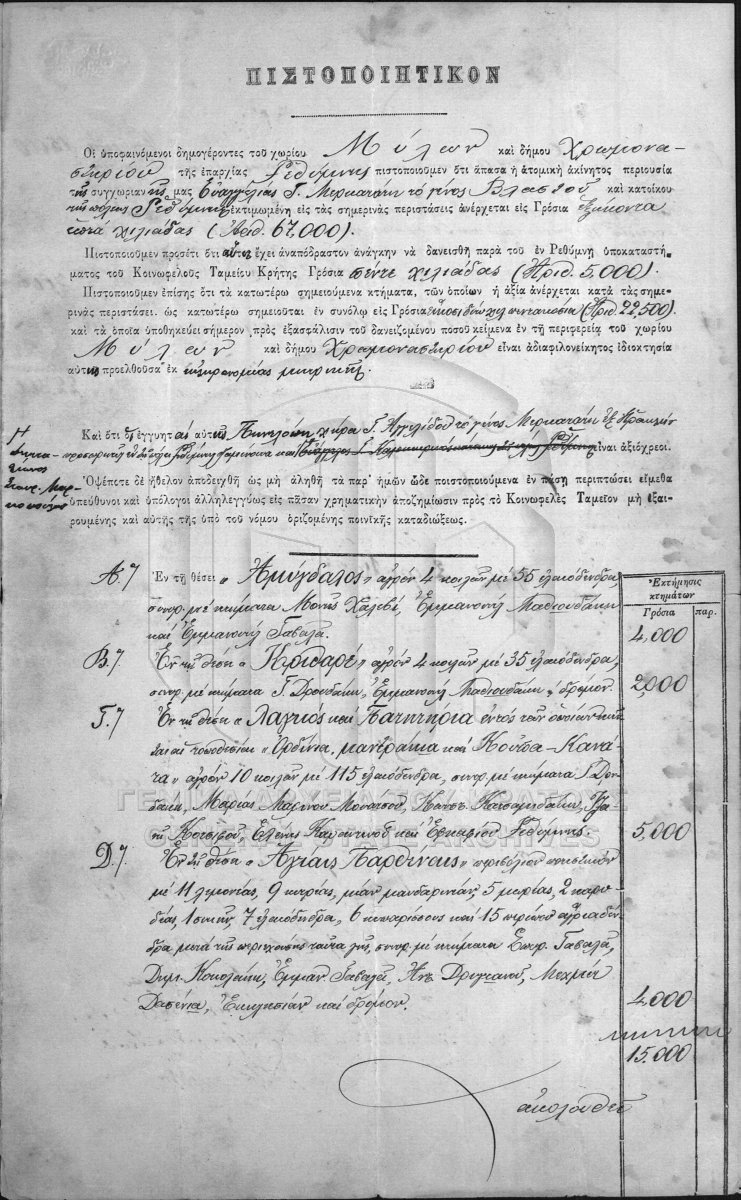 ΠΙΣΤΟΠΟΙΗΤΙΚΟΝ
Οἱ ὑποφαινόμενοι δημογέροντες τοῦ χωρίου Μύλων καὶ δήμου Χρωμονα-
στηρίου τῆς ἐπαρχίας Ρεθύμνης πιστοποιοῦμεν ὅτι ἅπασα ἡ ἀτομικὴ ἀκίνητος περιουσία
τῆς συγχωριανῆς μας Εὐαγγελίας Γ. Μερκατάτη τὸ γένος Βλαστοῦ καὶ κατοίκου
τῆς πόλεως Ρεθύμνης ἐκτιμωμένη εἰς τὰς σημερινὰς περιστάσεις ἀνέρχεται εἰς Γρόσια ἑξήκοντα
ἑπτὰ χιλιάδας (Ἀριθ. 67,000).
Πιστοποιοῦμεν προσέτι ὅτι αὕτη ἔχει ἀναπόδραστον ἀνάγκην νὰ δανεισθῇ παρὰ τοῦ ἐν Ρεθύμνῃ ὑποκαταστή-
ματος τοῦ Κοινωφελοῦς Ταμείου Κρήτης Γρόσια πέντε χιλιάδας (Ἀριθ. 5,000).
Πιστοποιοῦμεν ἐπίσης ὅτι τὰ κατωτέρω σημειούμενα κτήματα, τῶν ὁποίων ἡ ἀξία ἀνέρχεται κατὰ τὰς σημε-
ρινὰς περιστάσει. ὡς κατωτέρω σημειοῦται ἐν συνόλῳ εἰς Γρόσια εἴκοσι δύο χιλ πεντακόσια (Ἀριθ. 22,500)
καὶ τὰ ὁποῖα ὑποθηκεύει σήμερον πρὸς ἐξασφάλισιν τοῦ δανειζομένου ποσοῦ κείμενα ἐν τῇ περιφερείᾳ τοῦ χωρίου
Μύλων καὶ δήμου Χρωμοναστηρίου εἶναι ἀδιαφιλονείκητος ἰδιοκτησία
αὐτῆς προελθοῦσα ἐκ κληρονομίας μητρικῆς.
Καὶ ὅτι ὁ ἐγγυητὰς αὐτῆς Πηνελόπη χήρα Γ. Ἀγγελίδου τὸ γένος Μερκατάτη ἐξ Ἡρακλείου
προσωρινῶς ἐν Ρεθύμνῃ καὶ εἶναι ἀξιόχρεοι.
Ὁψέποτε δὲ ἤθελον ἀποδειχθῆ ὡς μὴ ἀληθῆ τὰ παρ' ἡμῶν ὧδε πιστοποιούμενα ἐν πάσῃ περιπτώσει εἴμεθα
ὑπεύθυνοι καὶ ὑπόλογοι ἀλληλεγγύως εἰς πᾶσαν χρηματικὴν ἀποζημίωσιν πρὸς τὸ Κοινωφελὲς Ταμεῖον μὴ ἐξαι-
ρουμένης καὶ αὐτῆς τῆς ὑπὸ τοῦ νόμου ὁριζομένης ποινικῆς καταδιώξεως.
Ἐκτήμησις
κτημάτων
Γρόσια παρ.
Α.) Ἐν τῇ θέσει "Ἀμύγδαλος" ἀγρὸν 4 κοιλῶν μὲ 55 ἐλαιόδενδρα,
συνορ. μὲ κτήματα Μονῆς Χαλεβί, Ἐμμανουὴλ Παδιουδάκη
καὶ Ἐμμανουὴλ Γαβαλᾶ. 4,000
Β.) Ἐν τῇ θέσει "Κριθαρέ" ἀγρὸν 4 κοιλῶν μὲ 35 ἐλαιόδενδρα,
συνορ. μὲ κτήματα Γ. Δρουδάκη, Ἐμμανουὴλ Παδιουδάκη, δρόμον. 2,000
Γ.) Ἐν τῇ θέσει "Λαγκὸς καὶ Πατητήρια ἐντὸς τῶν ὁποίων
αἱ τοποθεσίαι "Ὀρδίνια, μανδράκια καὶ Κούπα-Κανά-
τα" ἀγρὸν 10 κοιλῶν μὲ 115 ἐλαιόδενδρα, συνορ. μὲ κτήματα Γ. Δρου-
δάκη, Μαρίας Μαρίνου Μονάτσου, Κωνστ. Κατσαμιδάκη,
Ἑλένης καὶ Ρεθύμνης. 5,000
Δ.) Ἐν τῇ θέσει "Ἁγίαις Παρθέναις" περιβόλιον ποτιστικὸν
μὲ 11 λεμονέας, 9 κιτρίας, μίαν μανδαρινέαν, 5 μορέας, 2 καρυ-
δέας, 1 συκῆν, 7 ἐλαιόδενδρα, 6 κυπαρίσσους καὶ 15 ἀγριαδέν-
δρα μετὰ τῆς περιεχούσης ταῦτα γῆς, συνορ. μὲ κτήματα Σπυρ. Γαβαλᾶ,
Δημ. Κουλάκη, Ἐμμαν. Γαβαλᾶ, Ἀντ. Δρυγιανοῦ, Μεχμὲτ
Δασένια, Ἐκκλησίαν καὶ δρόμον. 4,000
15.000
ἀκολουθεῖ
ΓΕΝΙΚΑ ΑΡΧΕΙΑ ΤΟΥ ΚΡΑΤΟΥΣ
GENERAL STATE ARCHIVES